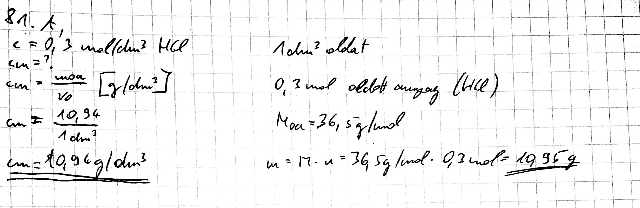 81. A,
c = 0,3 mol/dm³ HCl
cm = ?
cm = moa / Vo [g/dm³]
cm = 10,94 / 1 dm³
cm = 10,94 g/dm³
1 dm³ oldat
0,3 mol oldott anyag (HCl)
Moa = 36,5 g/mol
m = M · n = 36,5 g/mol · 0,3 mol = 10,95 g